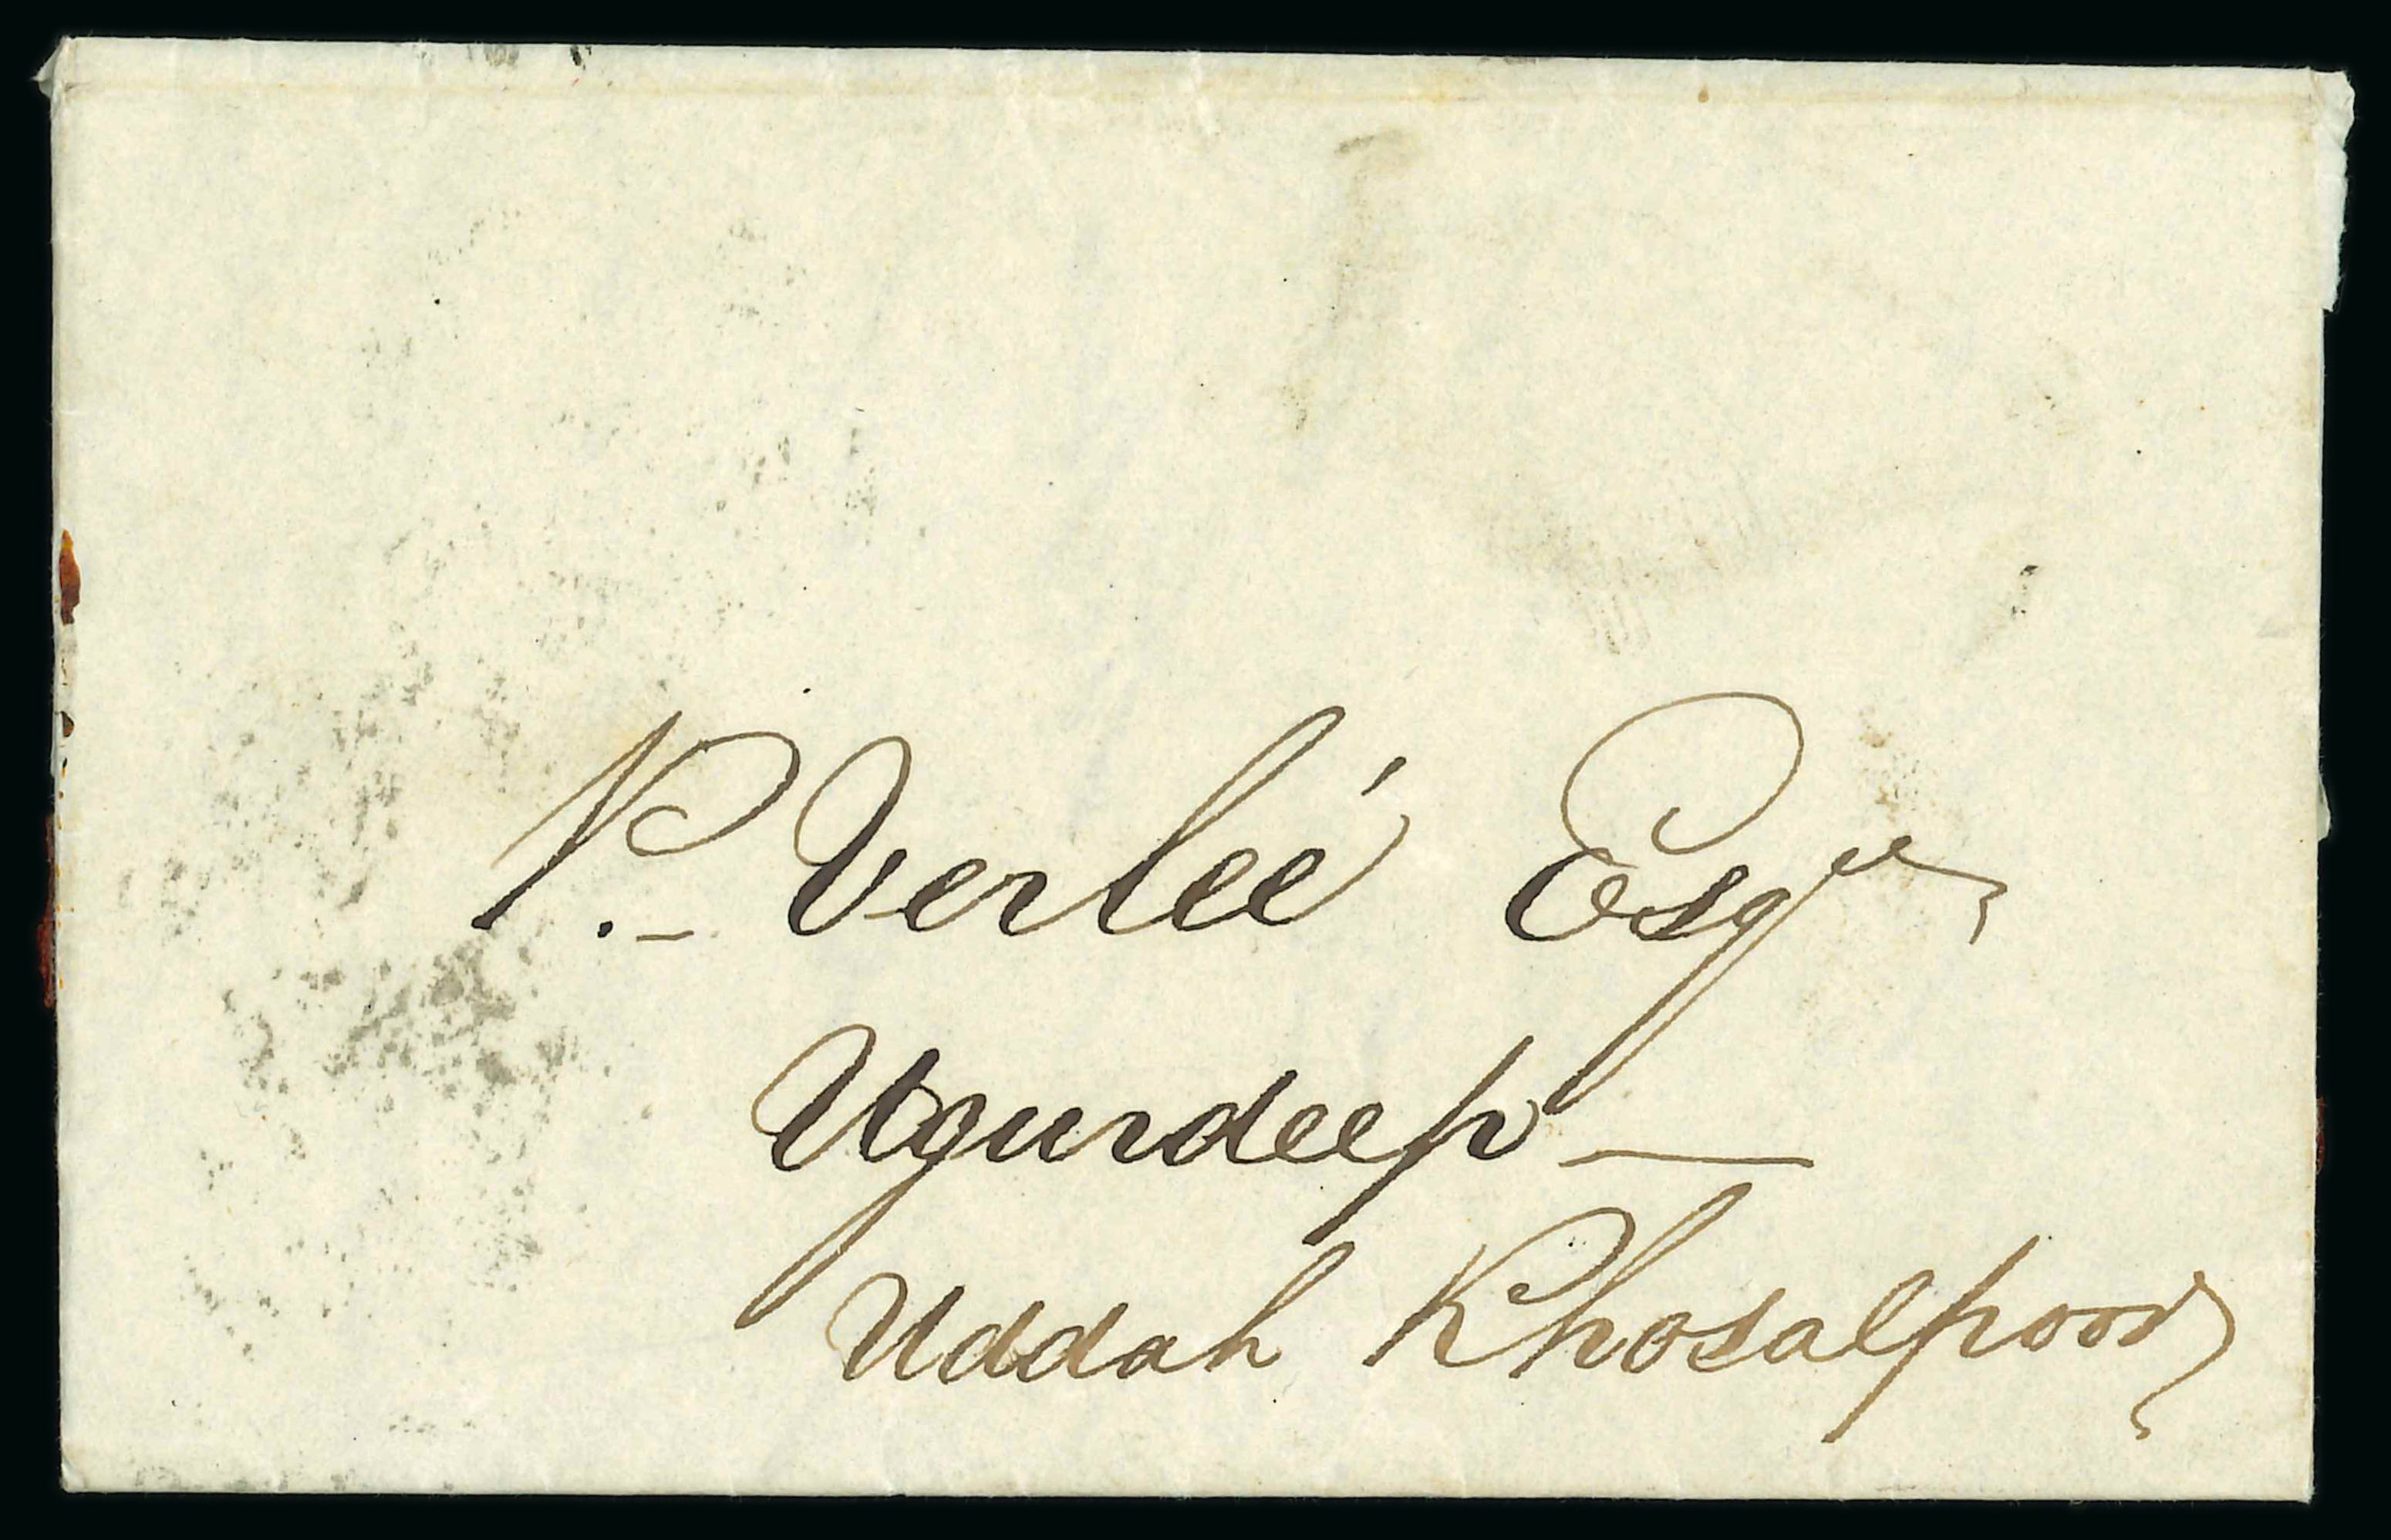 P. - Verleé Esqre
Ugurdeep —
Uddah Khosalpoor